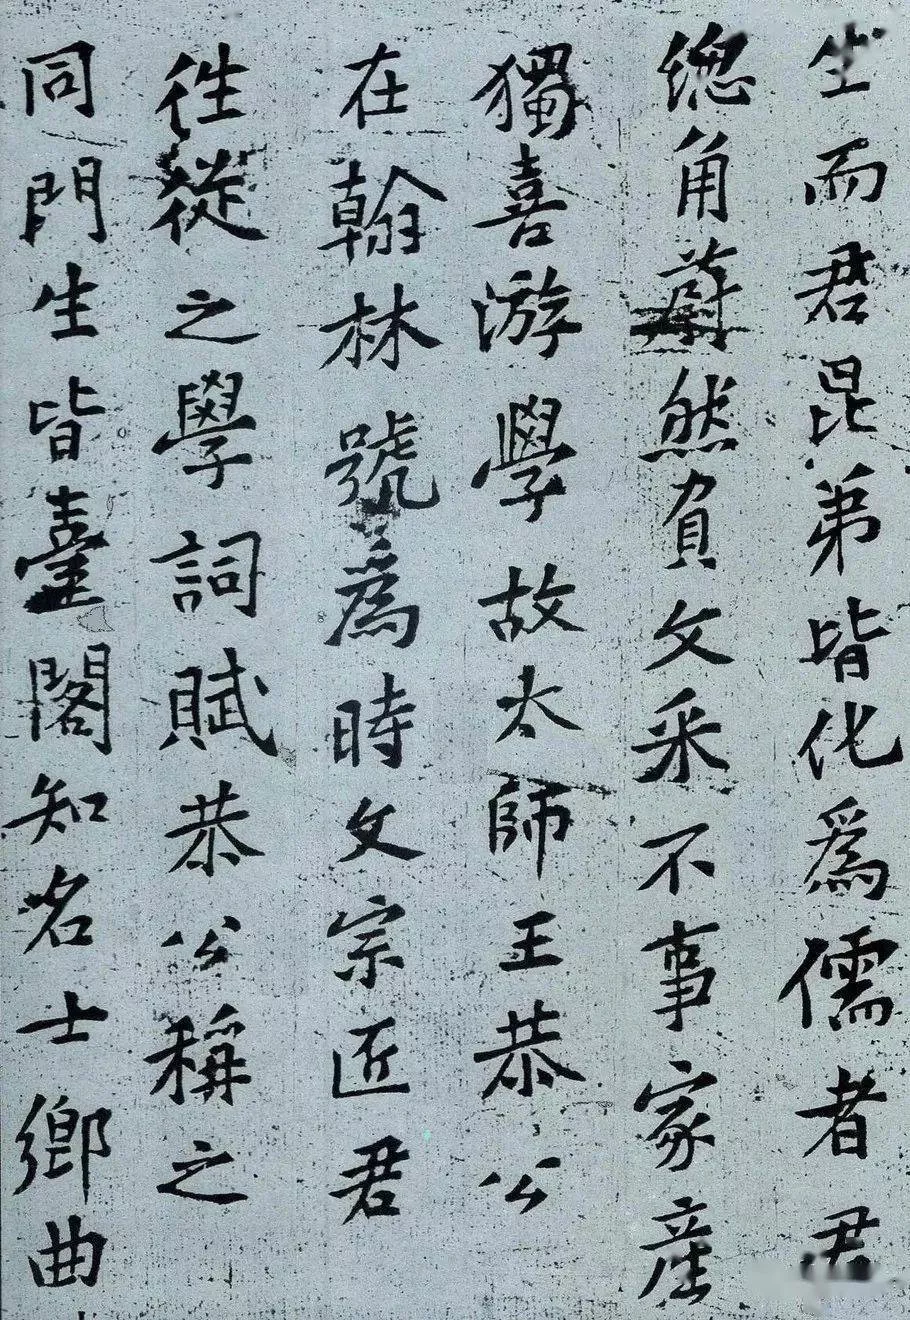 生而君昆弟皆化為儒者君
總角蔚然負文采不事家產
獨喜游學故太師王恭公
在翰林號為時文宗匠君
往從之學詞賦恭公稱之
同門生皆臺閣知名士鄉曲